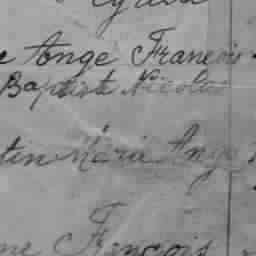 e Ange Francois
Baptiste Nicolas
tin Marie Ange
me Francois